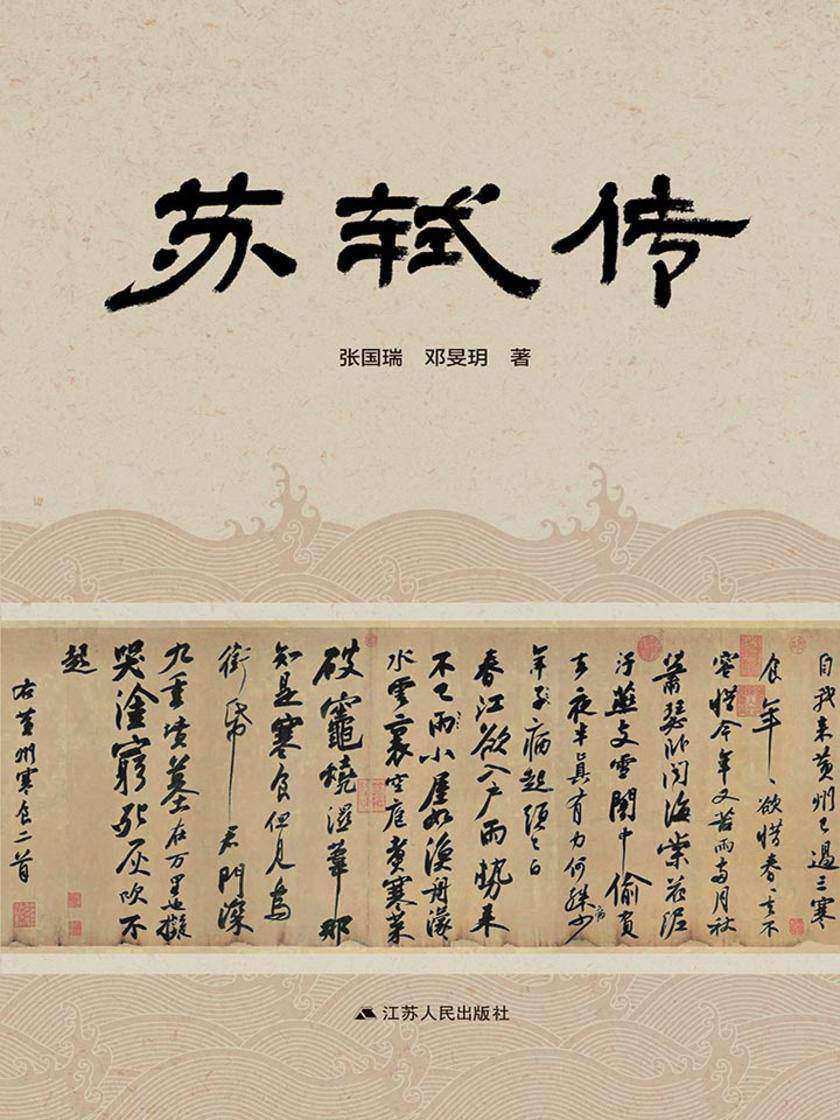 苏轼传
张国瑞 邓旻玥 著
自我来黄州已過三寒
食年〻欲惜春〻去不
容惜今年又苦雨两月秋
蕭瑟卧聞海棠花泥
汙燕支雪闇中偷負
去夜半真有力何殊少病
年子病起須已白
春江欲入户雨勢来
不已雨小屋如漁舟濛〻
水雲裏空庖煮寒菜
破竈燒濕葦那
知是寒食但見烏
銜帋君門深
九重墳墓在万里也擬
哭塗窮死灰吹不
起
右黄州寒食二首
江苏人民出版社